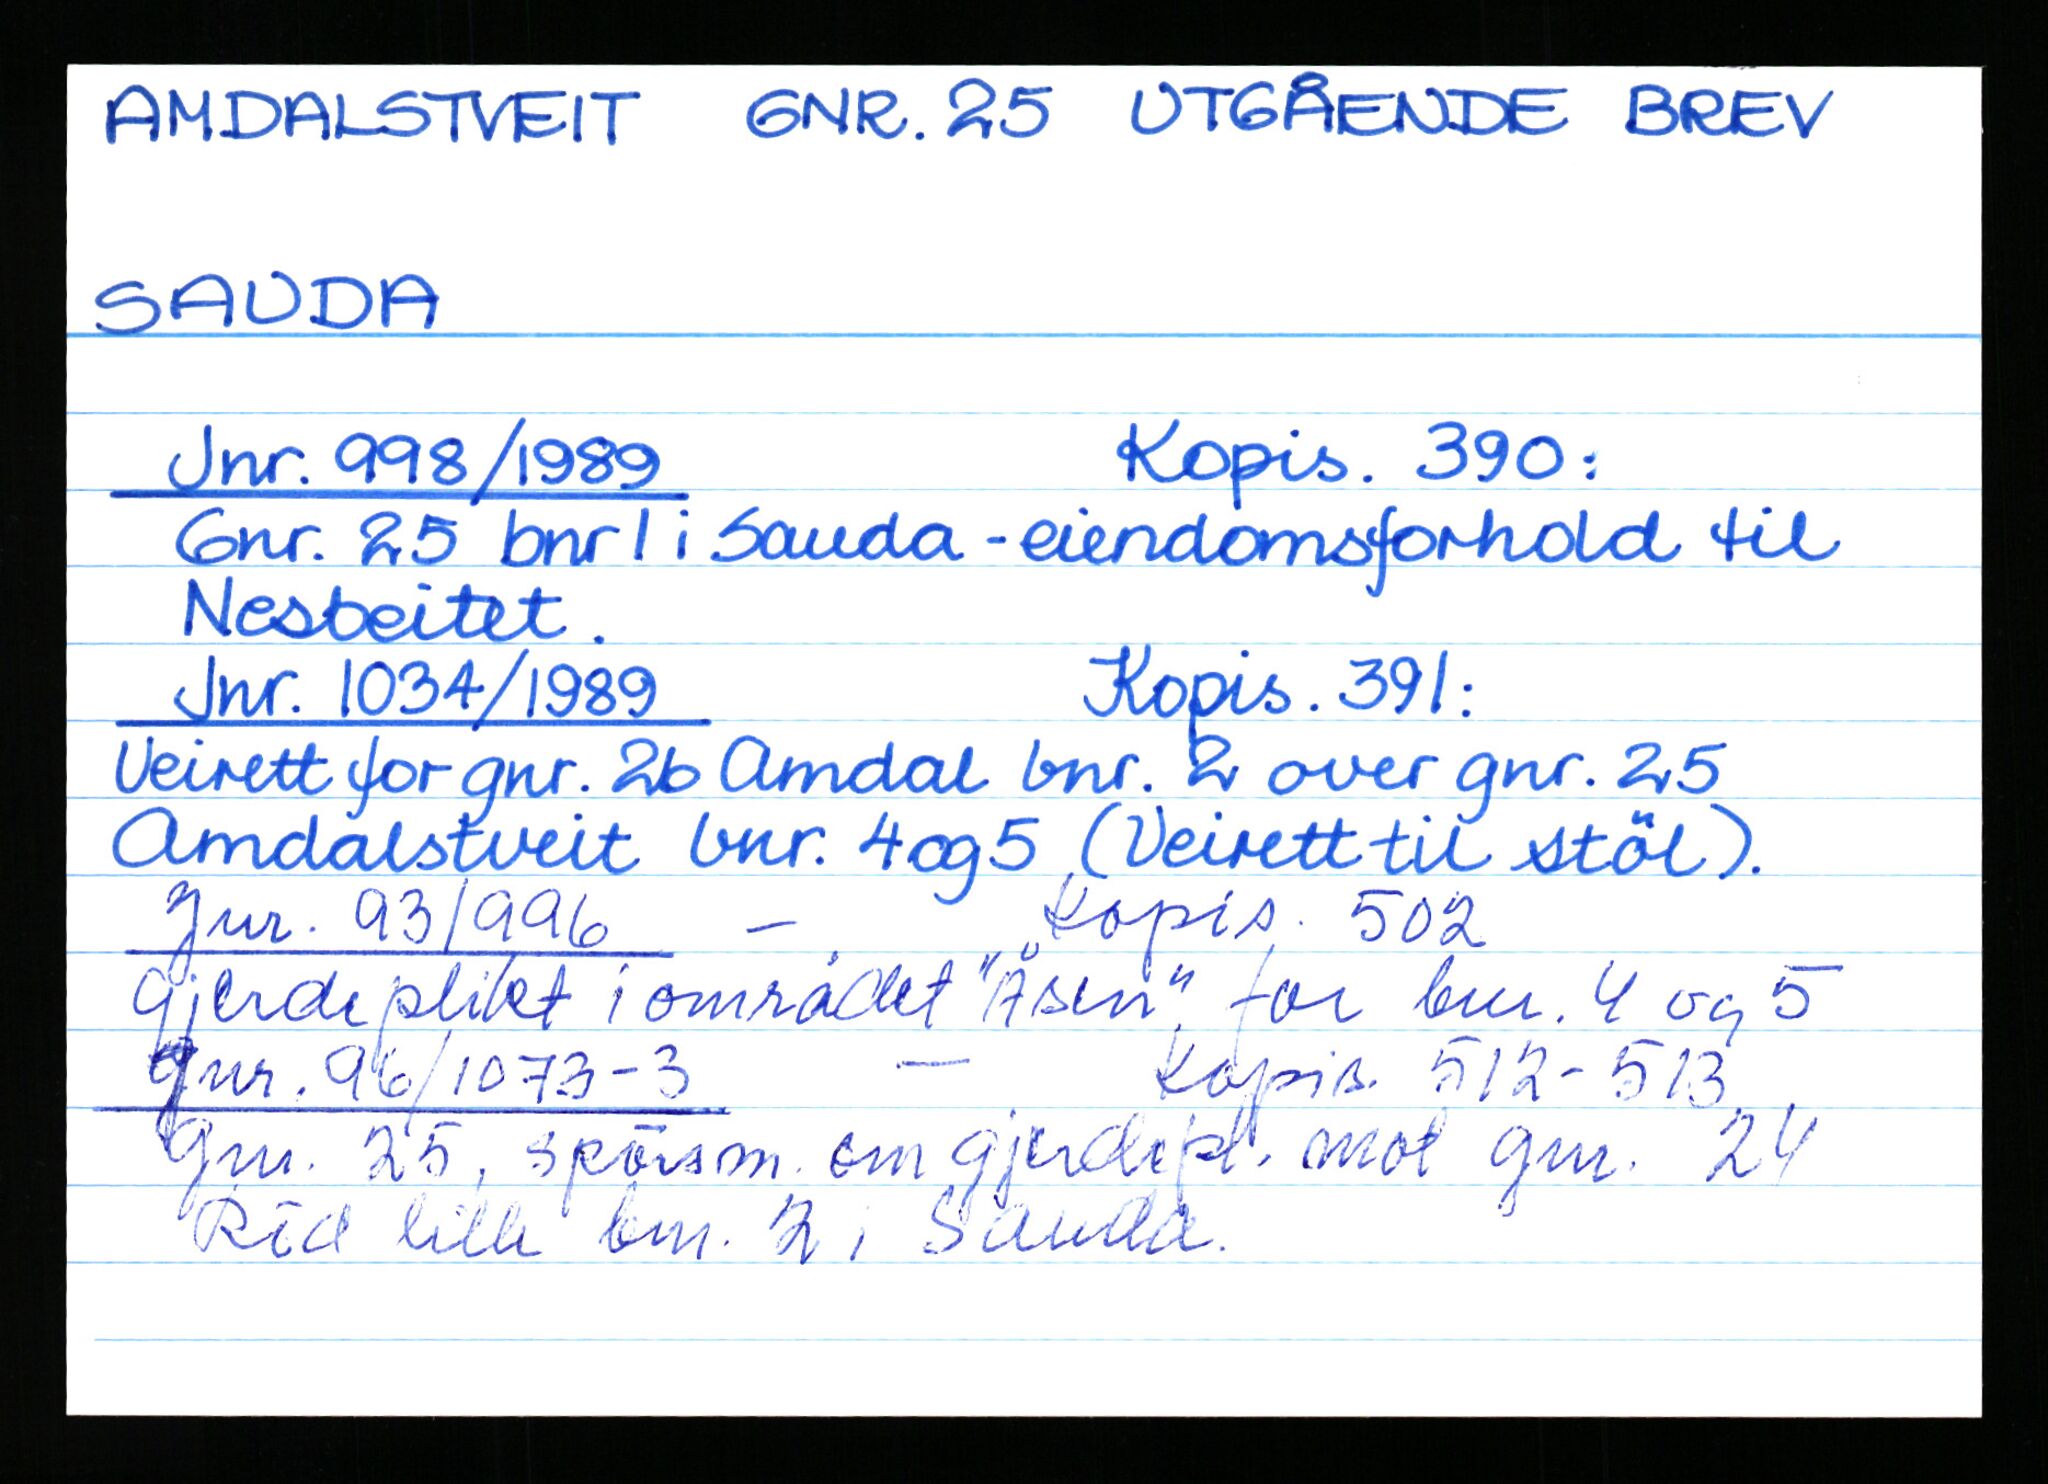 AMDALSTVEIT GNR. 25 UTGÅENDE BREV
SAUDA
Jnr. 998/1989 Kopis. 390:
Gnr. 25 bnr 1 i Sauda - eiendomsforhold til
Nesbeitet.
Jnr. 1034/1989 Kopis. 391:
Veirett for gnr. 26 Amdal bnr. 2 over gnr. 25
Amdalstveit bnr. 4 og 5 (Veirett til stöl).
Jnr. 93/996 - Kopis. 502
Gjerdeplikt i området "Åsen", for bnr. 4 og 5
Jnr. 96/1073-3 - Kopis. 512-513
Gnr. 25, spörsm. om gjerdepl. mot gnr. 24
lille bnr. 2 i Sauda.